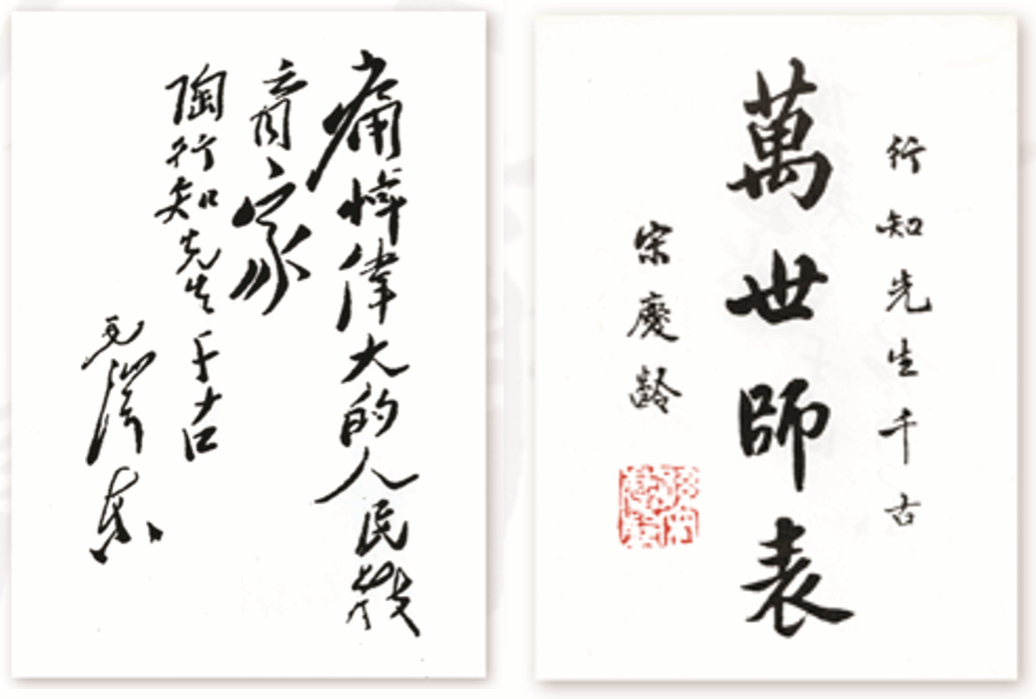 痛悼偉大的人民教
育家
陶行知先生千古
毛澤东
行知先生千古
萬世師表
宋慶齡